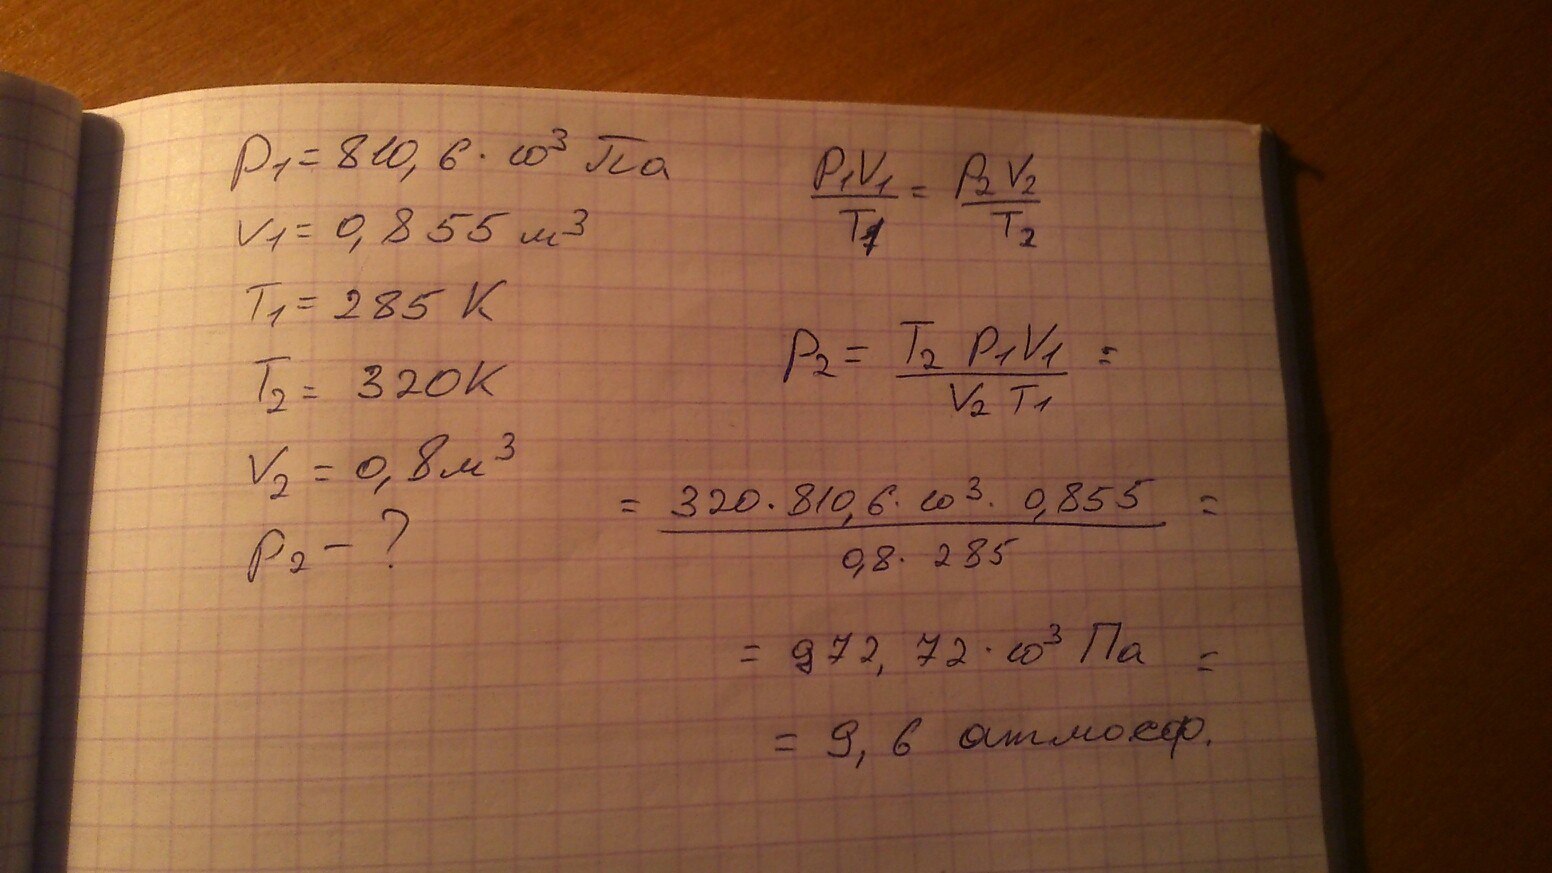 p₁ = 810,6 · 10³ Па
V₁ = 0,855 м³
T₁ = 285 К
T₂ = 320К
V₂ = 0,8м³
p₂ – ?
P₁V₁/T₁ = P₂V₂/T₂
p₂ = T₂ P₁V₁/V₂ T₁ =
= 320 · 810,6 · 10³ · 0,855/0,8 · 285 =
= 972,72 · 10³ Па =
= 9,6 атмосф.